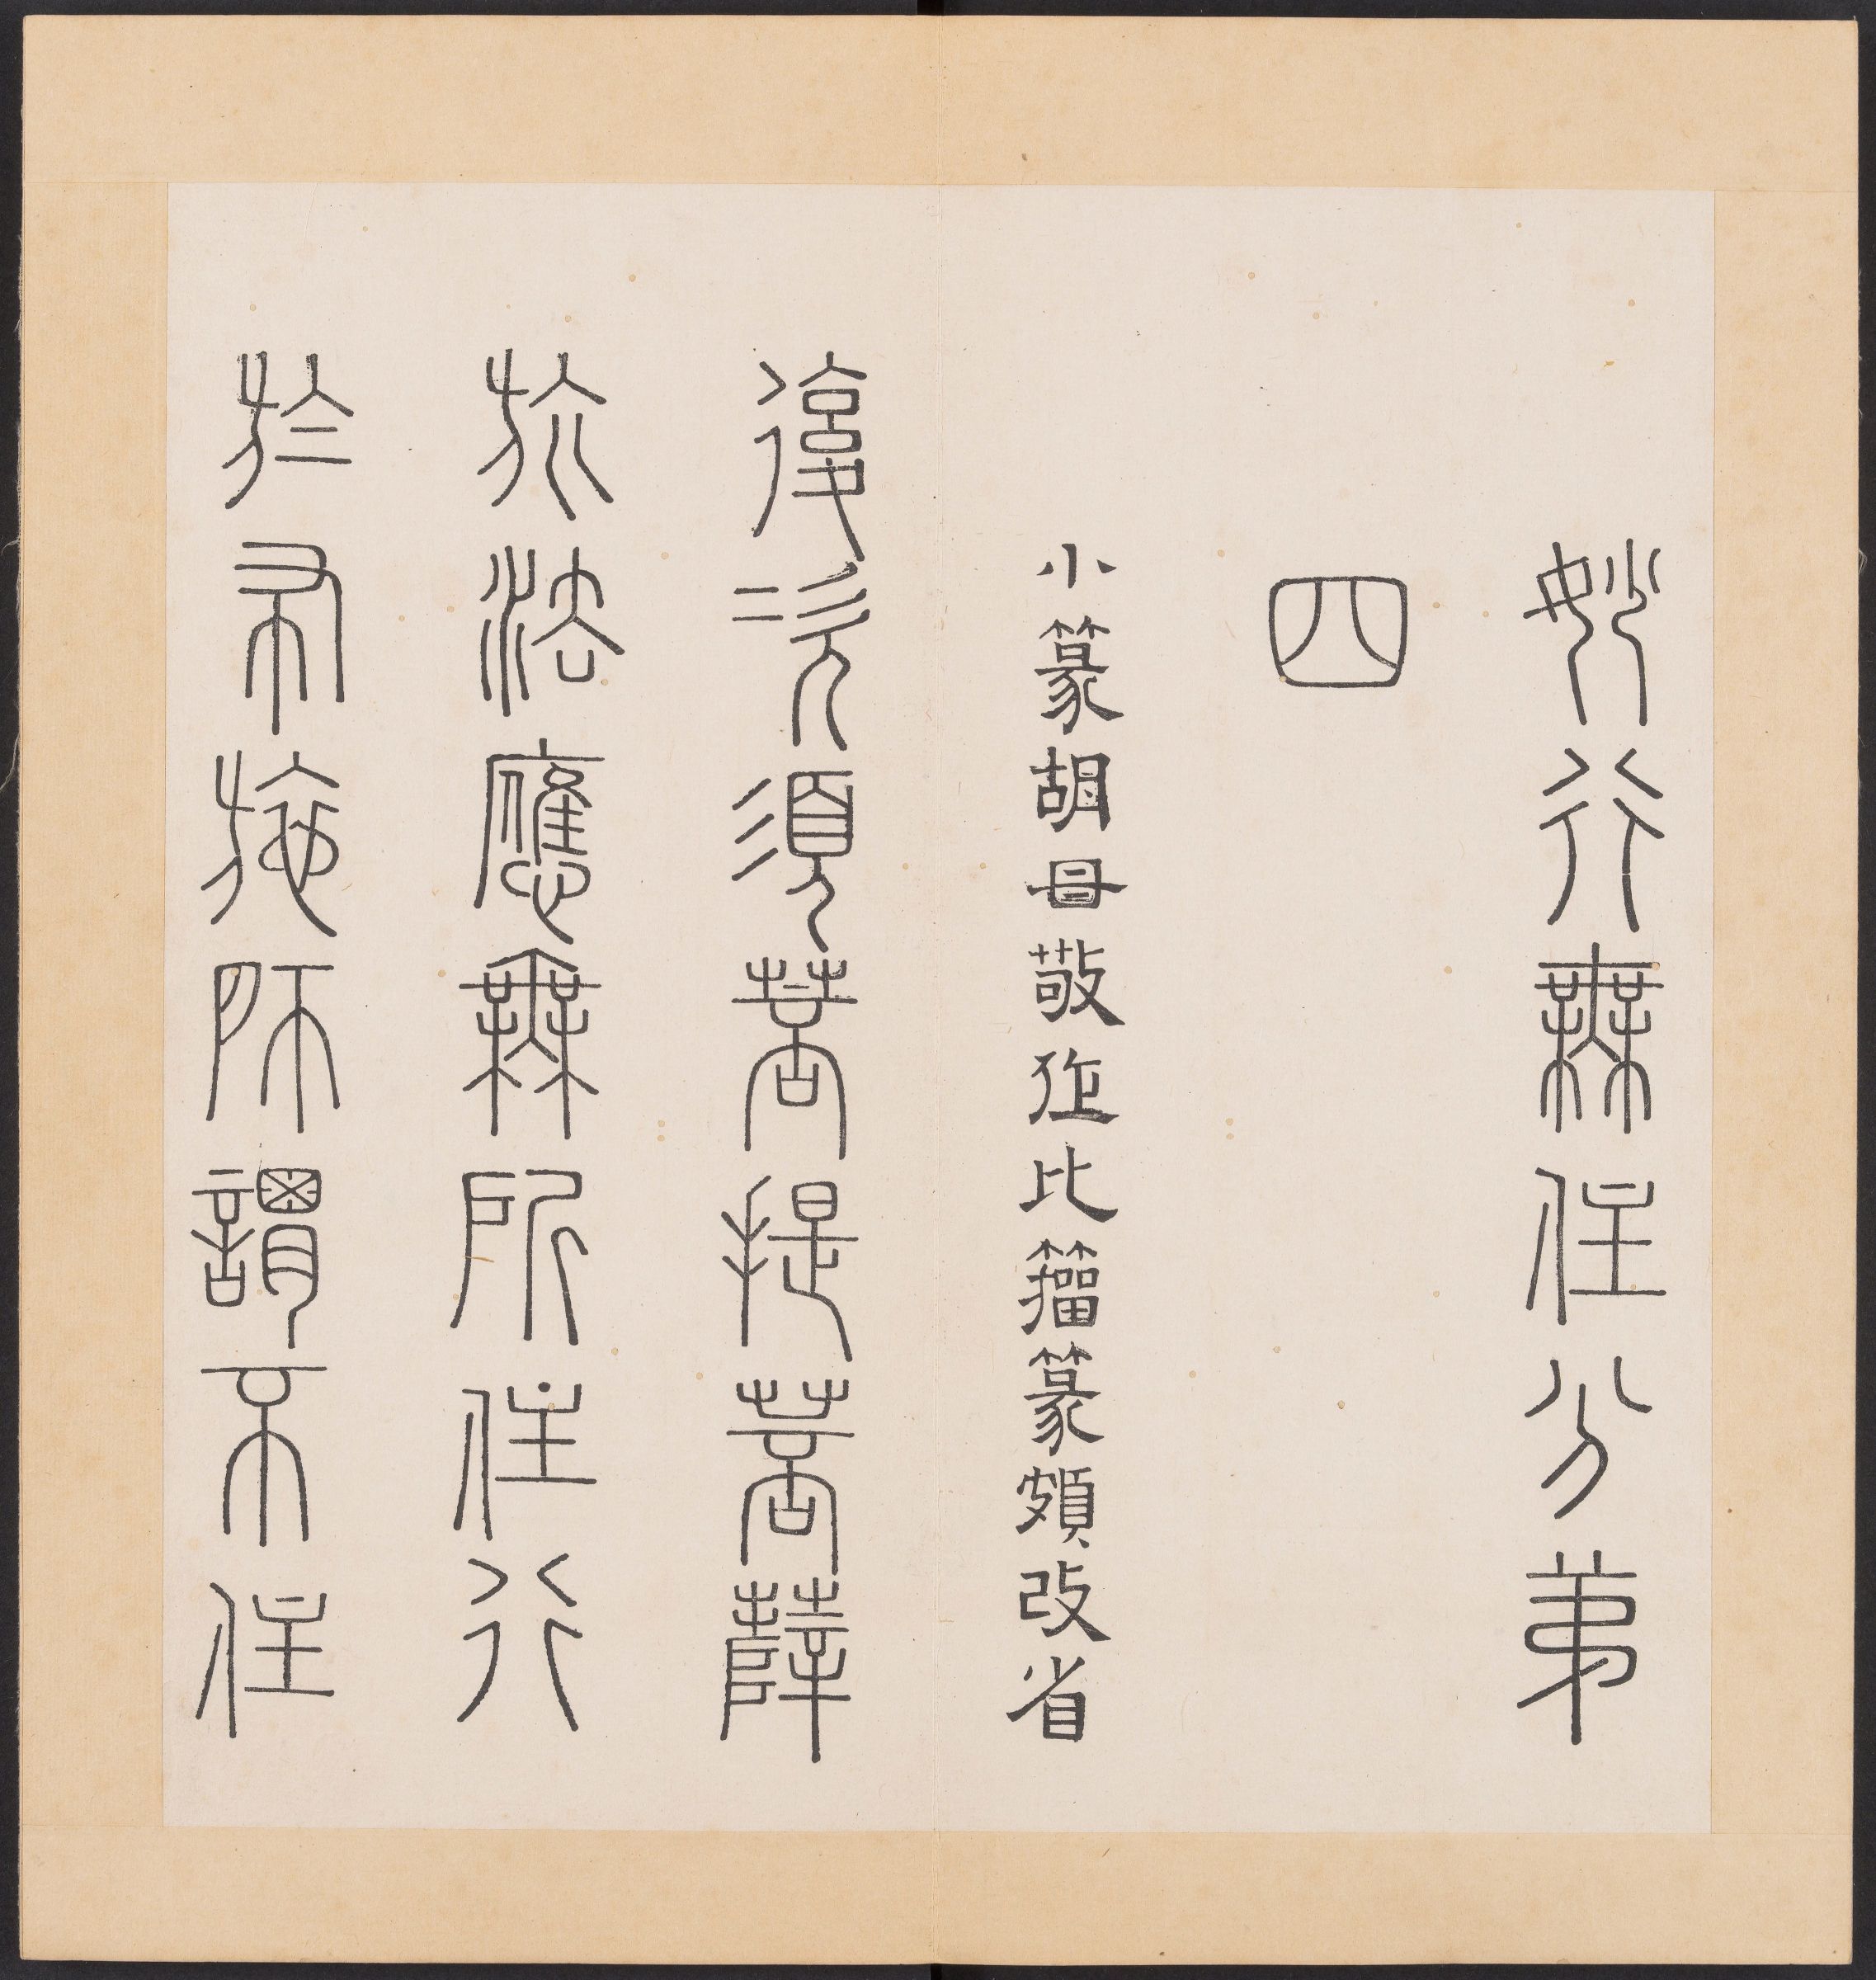 妙行無住分弟
四
小篆胡毋敬作比籀篆頗改省
復次須菩提菩薩
於法應無所住行
於布施所謂不住